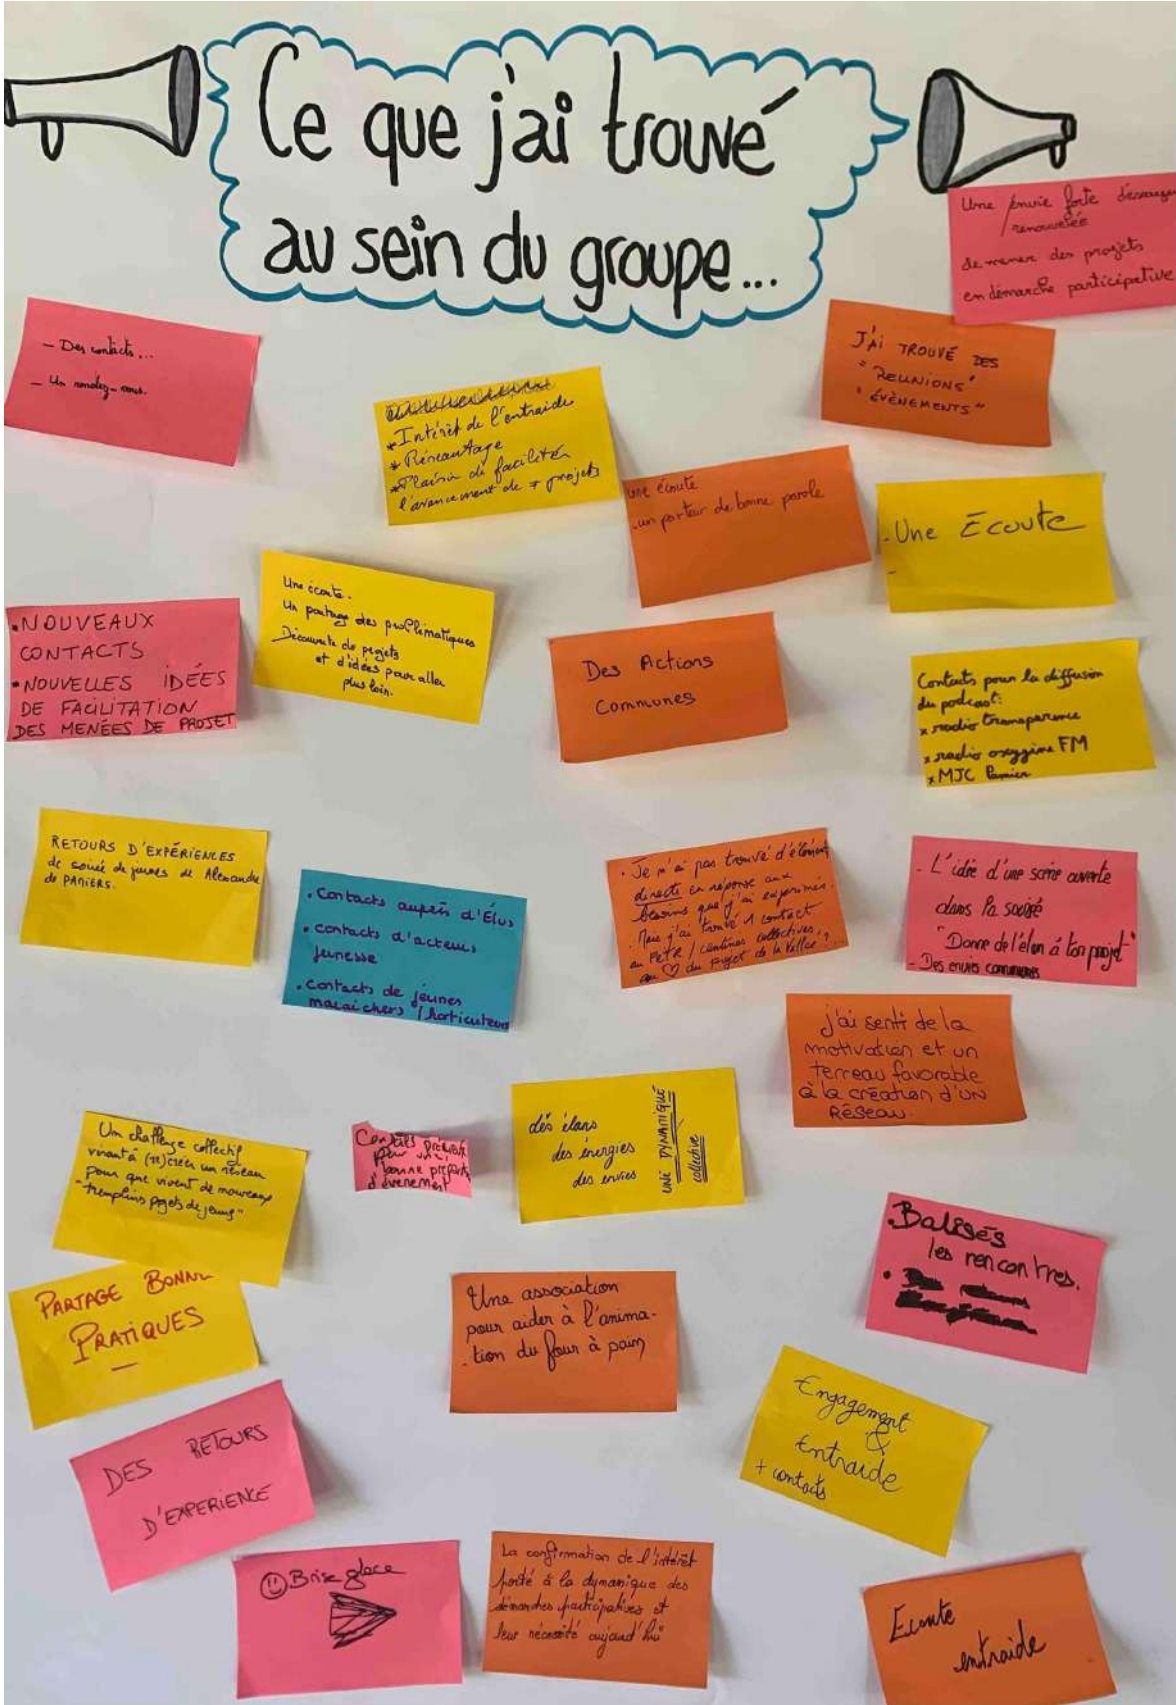 Ce que j'ai trouvé
au sein du groupe...
Une envie forte
renouvelée
de mener des projets
en démarche participative
- Des contacts...
- Un rendez-vous.
J'AI TROUVÉ DES
"REUNIONS"
"ÉVÈNEMENTS"
* Intérêt de l'entraide
* Réseautage
* Plaisir de faciliter
l'avancement de ≠ projets
une écoute
- un porteur de bonne parole
- Une Écoute
-
Une écoute.
Un partage des problématiques
Découverte de projets
et d'idées pour aller
plus loin.
• NOUVEAUX
CONTACTS
• NOUVELLES IDÉES
DE FACILITATION
DES MENÉES DE PROJET
Des Actions
Communes
Contacts pour la diffusion
du podcast:
x radio transparence
x radio oxygène FM
x MJC Pamier
RETOURS D'EXPÉRIENCES
de soirée de jeunes de Alexandre
de PAMIERS.
• Contacts auprès d'Élus
• contacts d'acteurs
jeunesse
• contacts de jeunes
maraichers / horticulteurs
• Je n'ai pas trouvé d'élément
directe en réponse aux
besoins que j'ai exprimés.
. Mais j'ai trouvé 1 contact
au PETR / cantines collectives,
au ♡ du projet de la
- L'idée d'une scène ouverte
dans la
"Donne de l'élan à ton projet"
- Des envies communes
j'ai senti de la
motivation et un
terreau favorable
à la création d'UN
RÉSEAU.
Un challenge collectif
visant à (re)créer un réseau
pour que vivent de nouveaux
"tremplins projets de jeunes"
Conseils précieux
pour une
bonne
d'évènement
dés élans
des énergies
des envies
UNE DYNAMIQUE
collective
• Balisés
les rencontres.
•
PARTAGE BONNE
PRATIQUES
Une association
pour aider à l'anima-
tion du four à pain
Engagement
&
Entraide
+ contacts
DES RETOURS
D'EXPERIENCE
Brise glace
La confirmation de l'intérêt
porté à la dynamique des
démarches participatives et
leur nécessité aujourd'hui
Ecoute
entraide